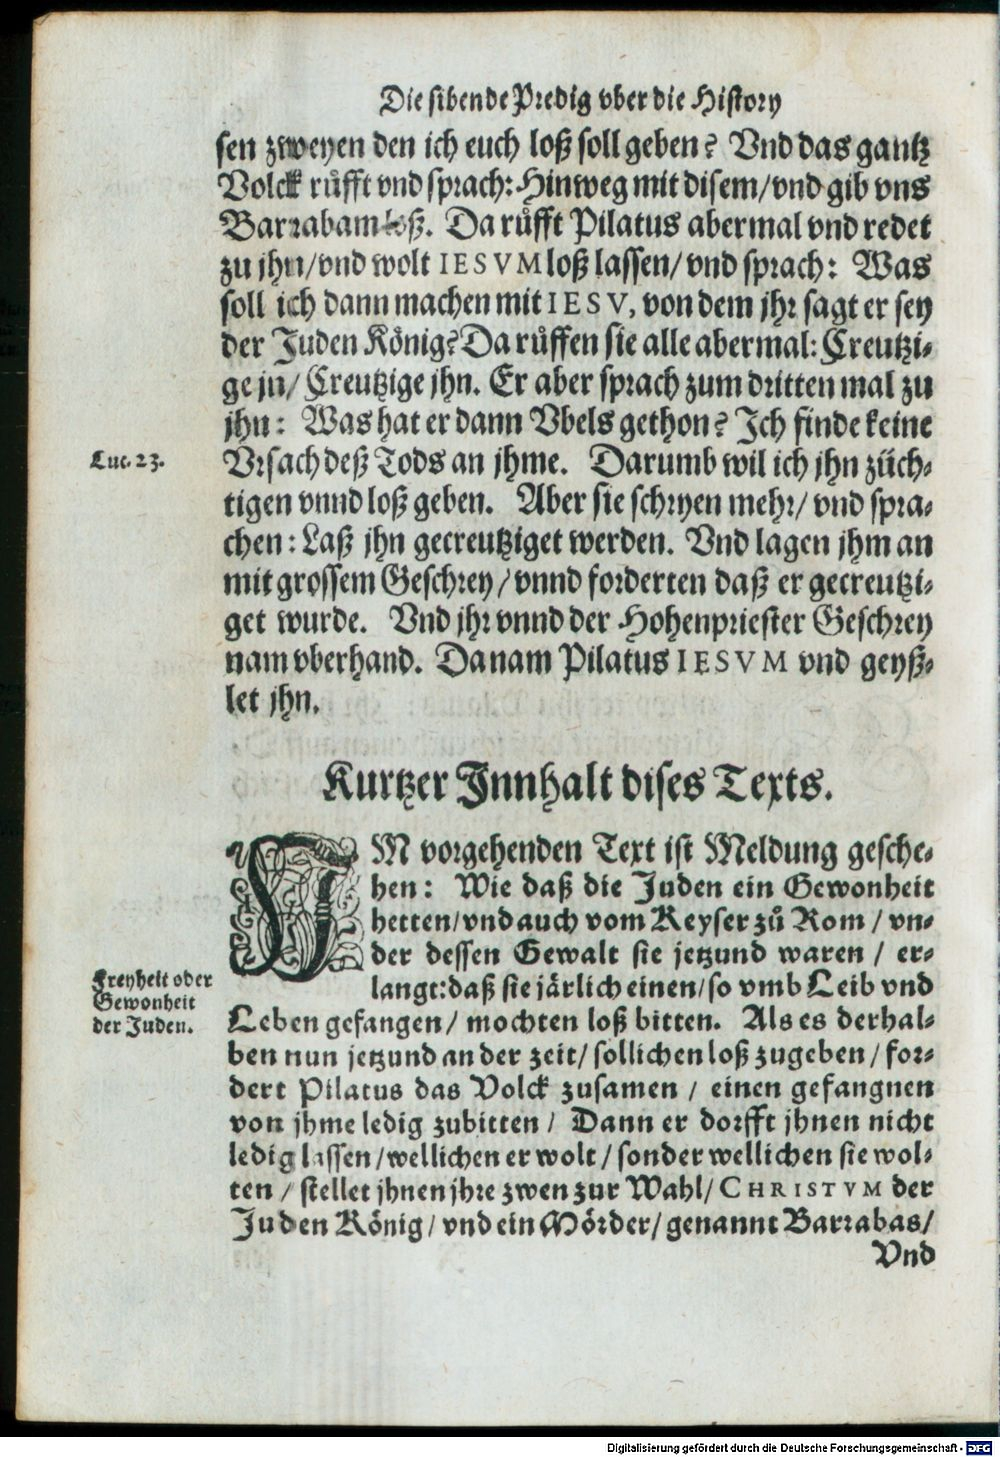 Die sibende Predig vber die History
sen zweyen den ich euch loß soll geben? Vnd das gantz
Volck růfft vnd sprach: Hinweg mit disem/ vnd gib vns
Barrabam loß. Da růfft Pilatus abermal vnd redet
zu jhn/ vnd wolt IESVM loß lassen/ vnd sprach: Was
soll ich dann machen mit IESV, von dem jhr sagt er sey
der Juden König? Da růffen sie alle abermal: Creutzi-
ge jn/ Creutzige jhn. Er aber sprach zum dritten mal zu
jhn: Was hat er dann Vbels gethon? Ich finde keine
Luc. 23.
Vrsach deß Tods an jhme. Darumb wil ich jhn züch-
tigen vnnd loß geben. Aber sie schryen mehr/ vnd spra-
chen: Laß jhn gecreutziget werden. Vnd lagen jhm an
mit grossem Geschrey/ vnnd forderten daß er gecreutzi-
get wurde. Vnd jhr vnnd der Hohenpriester Geschrey
nam vberhand. Da nam Pilatus IESVM vnd geyß-
let jhn.
Kurtzer Innhalt dises Texts.
IM vorgehenden Text ist Meldung gesche-
hen: Wie daß die Juden ein Gewonheit
hetten/ vnd auch vom Keyser zů Rom/ vn-
der dessen Gewalt sie jetzund waren/ er-
langt: daß sie järlich einen/ so vmb Leib vnd
Freyheit oder
Gewonheit
der Juden.
Leben gefangen/ mochten loß bitten. Als es derhal-
ben nun jetzund an der zeit/ sollichen loß zugeben/ for-
dert Pilatus das Volck zusamen/ einen gefangnen
von jhme ledig zubitten/ Dann er dorfft jhnen nicht
ledig lassen/ wellichen er wolt/ sonder wellichen sie wol-
ten/ stellet jhnen jhre zwen zur Wahl/ CHRISTVM der
Juden König/ vnd ein Mörder/ genannt Barrabas/
Vnd
Digitalisierung gefördert durch die Deutsche Forschungsgemeinschaft - DFG